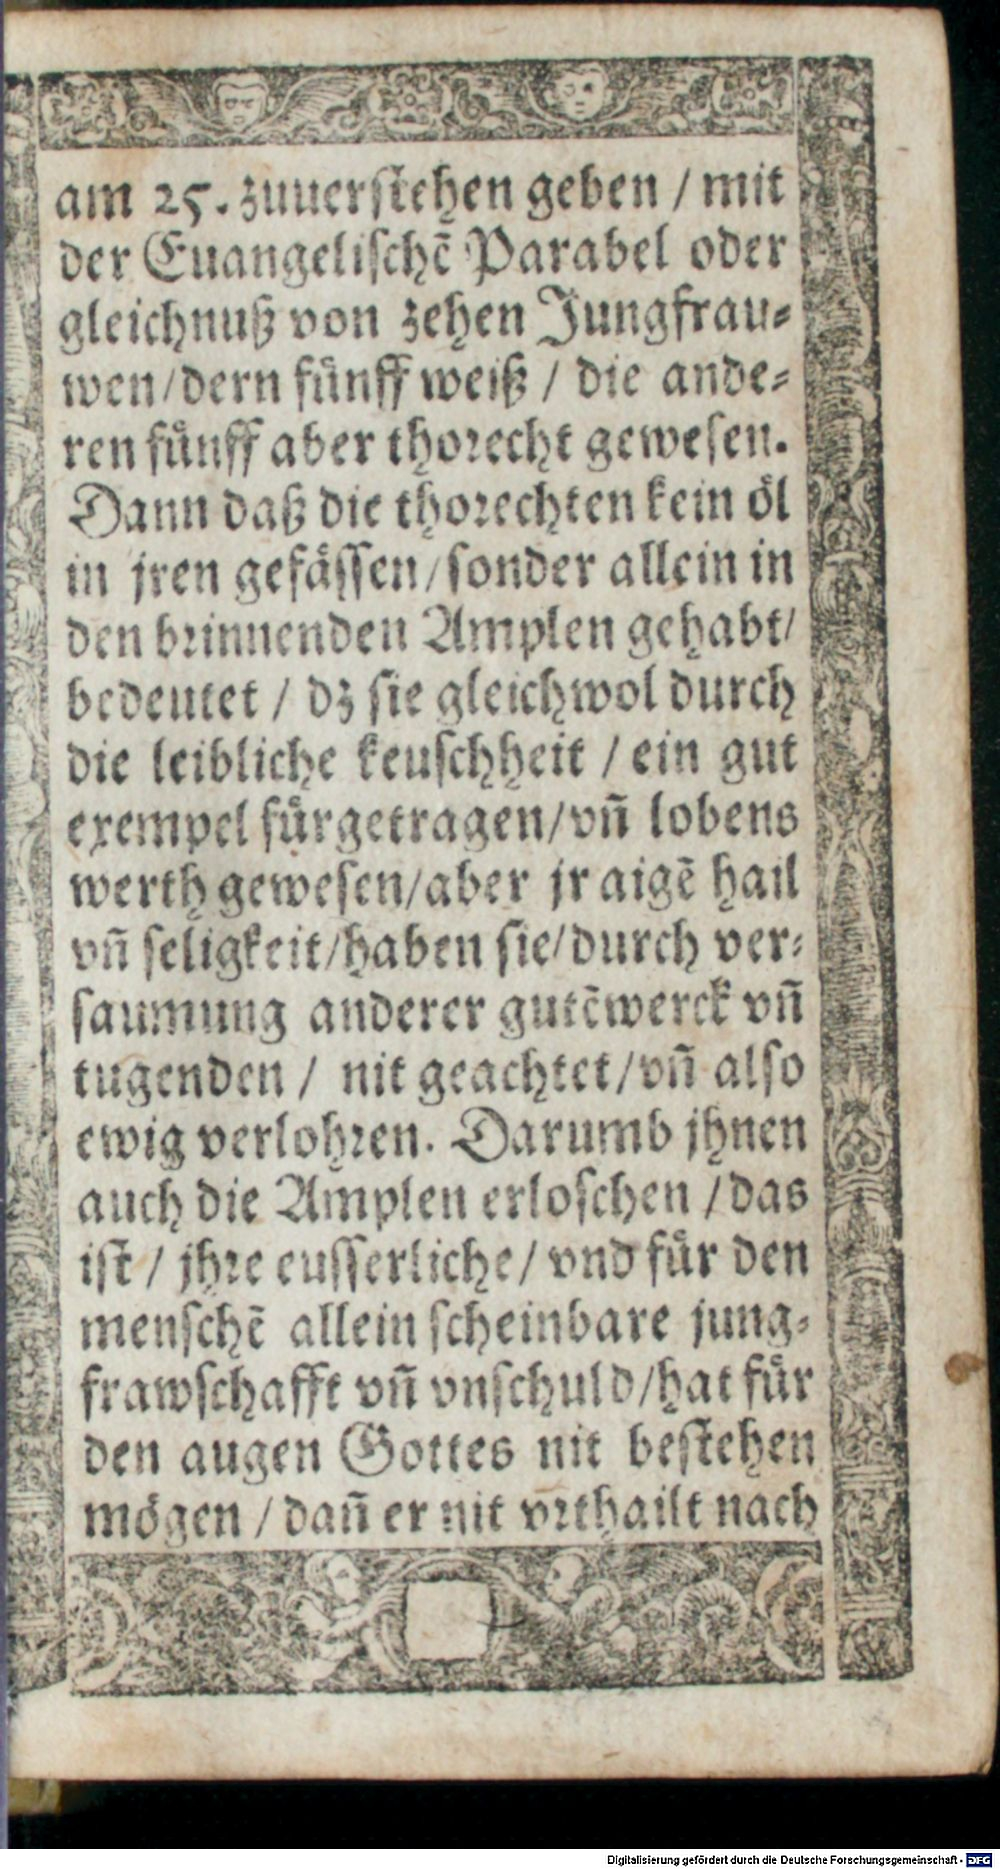 am 25. zuuerstehen geben / mit
der Euangelischẽ Parabel oder
gleichnuß von zehen Jungfrau⸗
wen / dern fünff weiß / die ande⸗
ren fünff aber thorecht gewesen.
Dann daß die thorechten kein öl
in jren gefässen / sonder allein in
den brinnenden Amplen gehabt /
bedeutet / dz sie gleichwol durch
die leibliche keuschheit / ein gut
exempel fürgetragen / vñ lobens
werth gewesen / aber jr aigẽ hail
vñ seligkeit / haben sie / durch ver⸗
saumung anderer gutẽ werck vñ
tugenden / nit geachtet / vñ also
ewig verlohren. Darumb jhnen
auch die Amplen erloschen / das
ist / jhre eusserliche / vnd für den
menschẽ allein scheinbare jung⸗
frawschafft vñ vnschuld / hat für
den augen Gottes nit bestehen
mögen / dañ er nit vrthailt nach
Digitalisierung gefördert durch die Deutsche Forschungsgemeinschaft - DFG